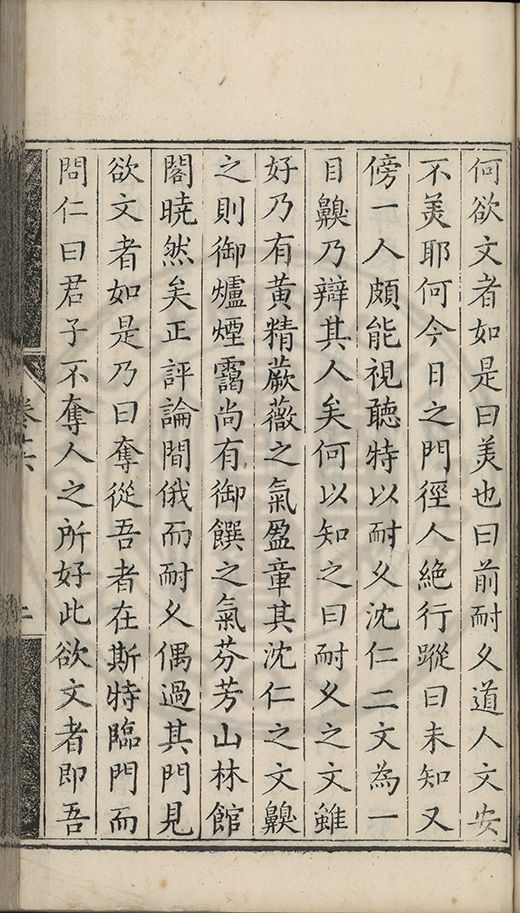 何欲文者如是曰美也曰前耐久道人文安
不羙耶何今日之門徑人絶行蹤曰未知又
傍一人頗能視聽特以耐久沈仁二文為一
目齅乃辯其人矣何以知之曰耐久之文雖
好乃有黄精蕨薇之氣盈章其沈仁之文齅
之則御爐煙靄尚有御饌之氣芬芳山林館
閣曉然矣正評論間俄而耐久偶過其門見
欲文者如是乃曰奪從吾者在斯特臨門而
問仁曰君子不奪人之所好此欲文者即吾
卷六